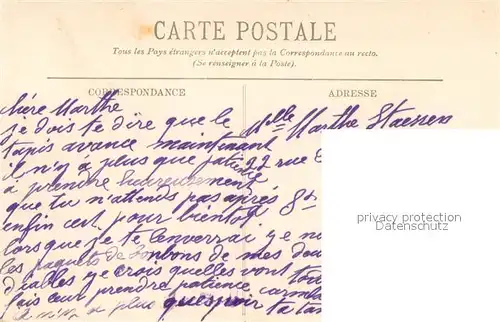 CARTE POSTALE
Tous les Pays étrangers n'acceptent pas la Correspondance au recto.
(Se renseigner à la Poste).
CORRESPONDANCE
ADRESSE
chère Marthe
je dois te dire que le
tapis avance maintenant
il n'y à plus que patience
à prendre heureusement
que tu n'attends pas après
enfin cest pour bientot
lorsque je te lenverrai ye
les paquets de bonbons de mes
diables ye crois quelles vont
fais leur prendre patience
plus quespoir ta
Melle Marthe Staessen
22 rue
privacy protection
www.delcampe.net